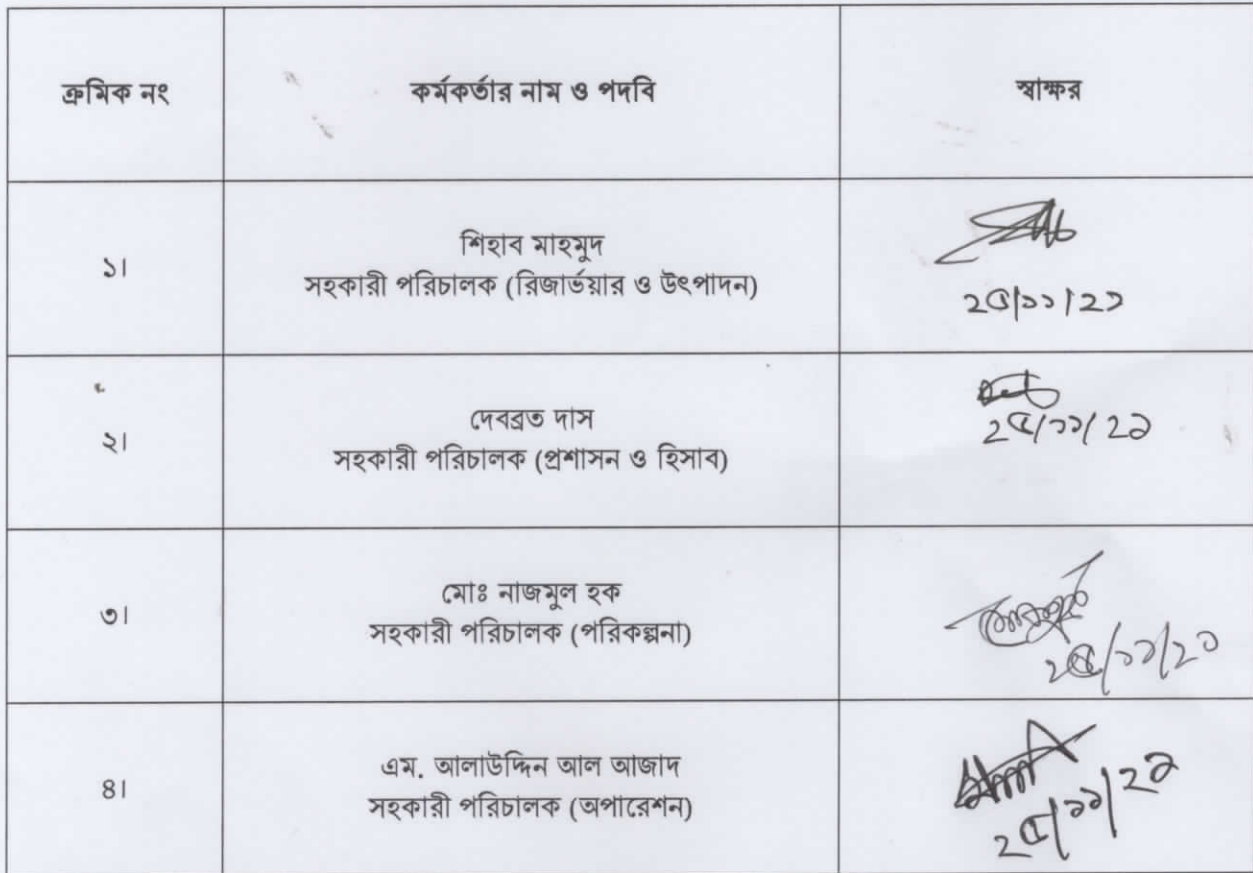 ক্রমিক নং
কর্মকর্তার নাম ও পদবি
স্বাক্ষর
১।
শিহাব মাহমুদ
সহকারী পরিচালক (রিজার্ভয়ার ও উৎপাদন)
২৫/১১/২১
২।
দেবব্রত দাস
সহকারী পরিচালক (প্রশাসন ও হিসাব)
২৫/১১/২১
৩।
মোঃ নাজমুল হক
সহকারী পরিচালক (পরিকল্পনা)
২৫/১১/২১
৪।
এম. আলাউদ্দিন আল আজাদ
সহকারী পরিচালক (অপারেশন)
২৫/১১/২১